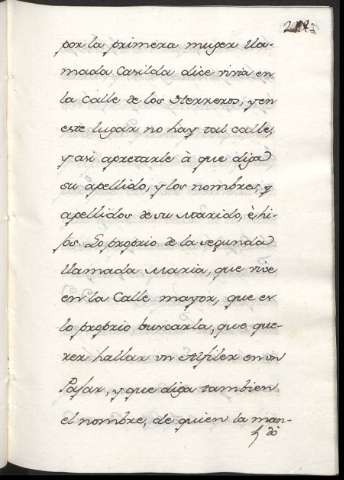 por la primera muger lla-
mada Casilda dice vivia en
la Calle de los Herreros, y en
este lugar no hay tal calle,
y asi apretarle à que diga
su apellido, y los nombres, y
apellidos de su Marido, è hi-
jos Lo proprio de la segunda
llamada Maria, que vive
en la Calle mayor, que es
lo proprio buscarla, que que-
rer hallar vn Alfiler en vn
Pajar, y que diga tambien
el nombre, de quien la man-
dò